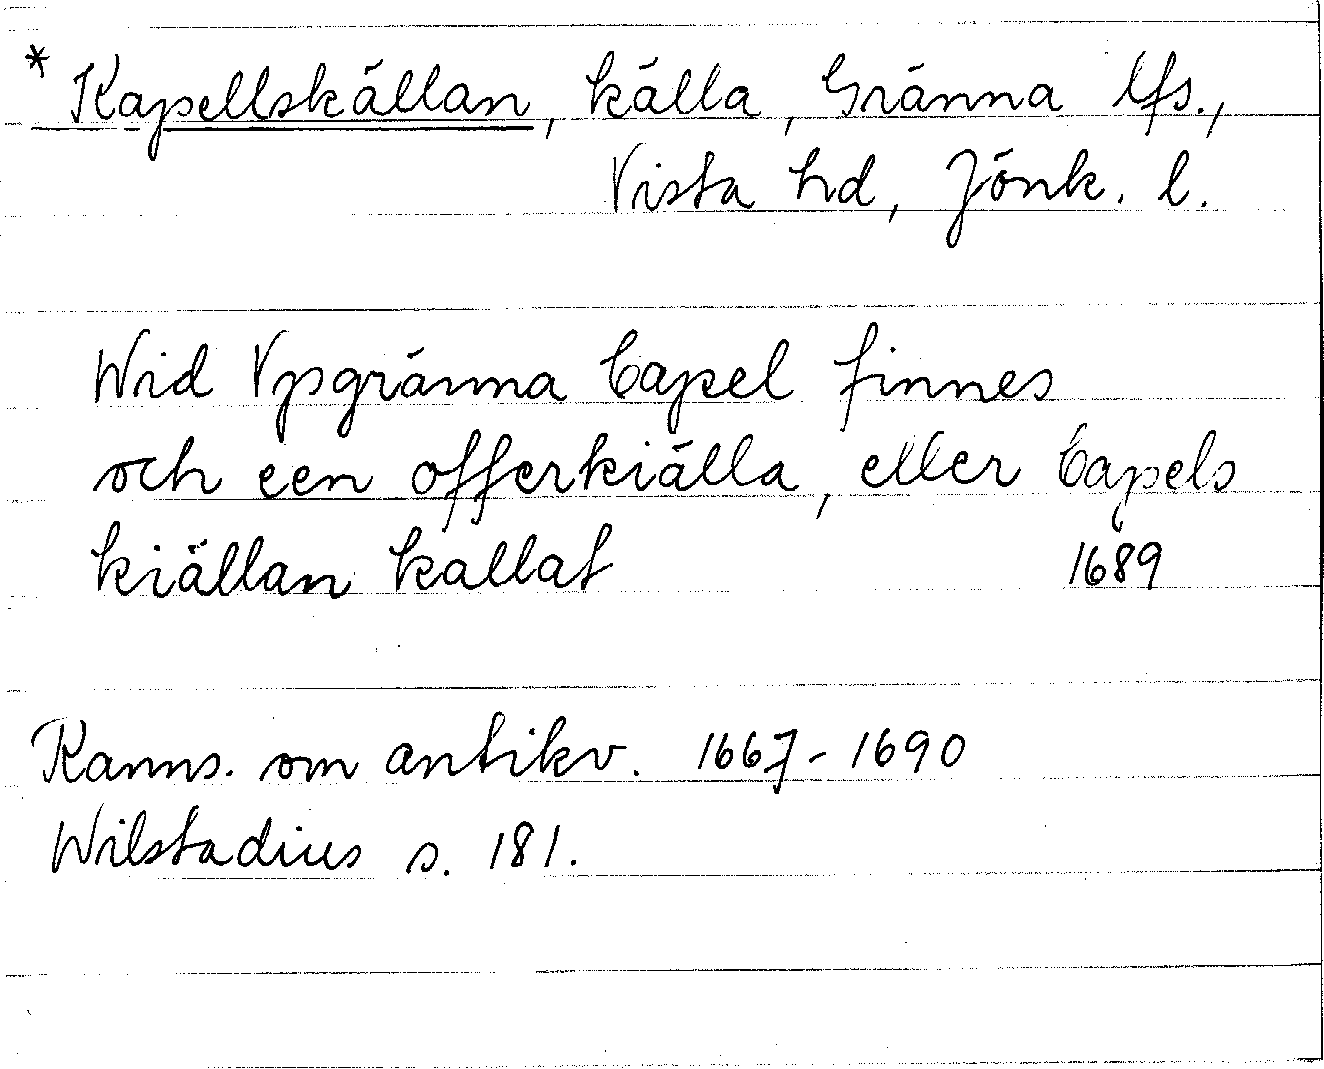 * Kapellskällan, källa, Gränna lfs.,
Vista hd, Jönk. l.
Wid Vpgränna Capel finnes
och een offerkiälla, eller Capels
kiällan kallat 1689
Ranns. om antikv. 1667-1690
Wilstadius s. 181.